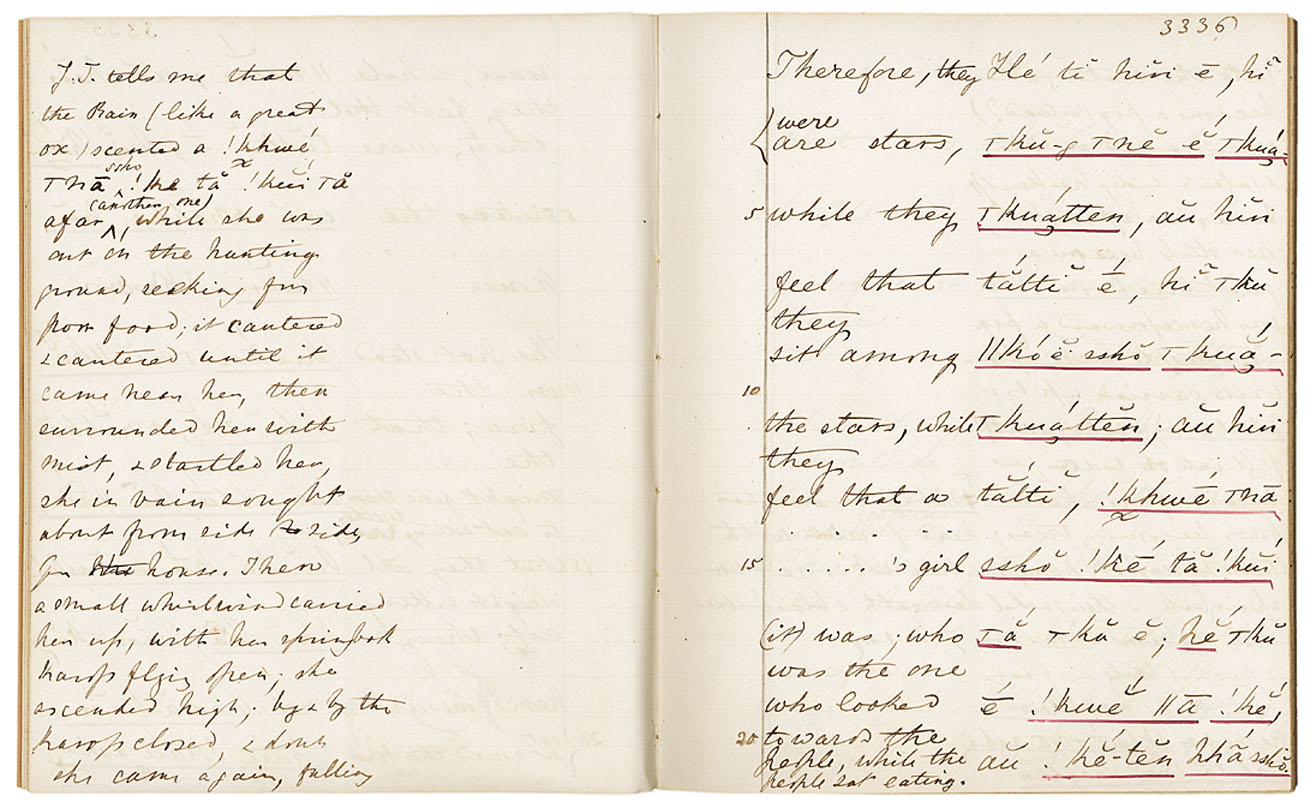 J.T. tells me that
the Rain (like a great
ox) scented a !khwé
ssho
ꞱnāꞱ !kĕ tă !kŭi Ʇă
(another one)
afar, while she was
out on the hunting
ground, seeking for
food; it cantered
& cantered until it
came near her, then
surrounded her with
mist, & startled her,
she in vain sought
about from side to side,
for the house. Then
a small whirlwind carried
her up, with her springbok
kaross flying open; she
ascended high; by & by the
kaross closed, & down
she came again, falling
3336
Therefore, they Hé tĭ hĭŋ ē, hĭ
were
are stars, Ʇkŭ-g Ʇnĕ ĕ Ʇkuá-
5 while they Ʇkuátten, aŭ hĭŋ
feel that tắltĭ é, hĭ Ʇkŭ
they
sit among ǁkó ĕ sshŏ Ʇkuá-
10
the stars, while Ʇkuáttĕn; aŭ hĭŋ
they
feel that a tắltĭ, !khwé Ʇnā
15 . . . . . 's girl sshŏ !kĕ́ tă !kŭí
(it) was; who Ʇă Ʇkŭ ĕ; hĕ́ Ʇkŭ
was the one
who looked é !kwĕ́ ǁā !kĕ́,
20 towards the
people, while the aŭ !kĕ́-tĕn hhā́ sshŏ
people sat eating.